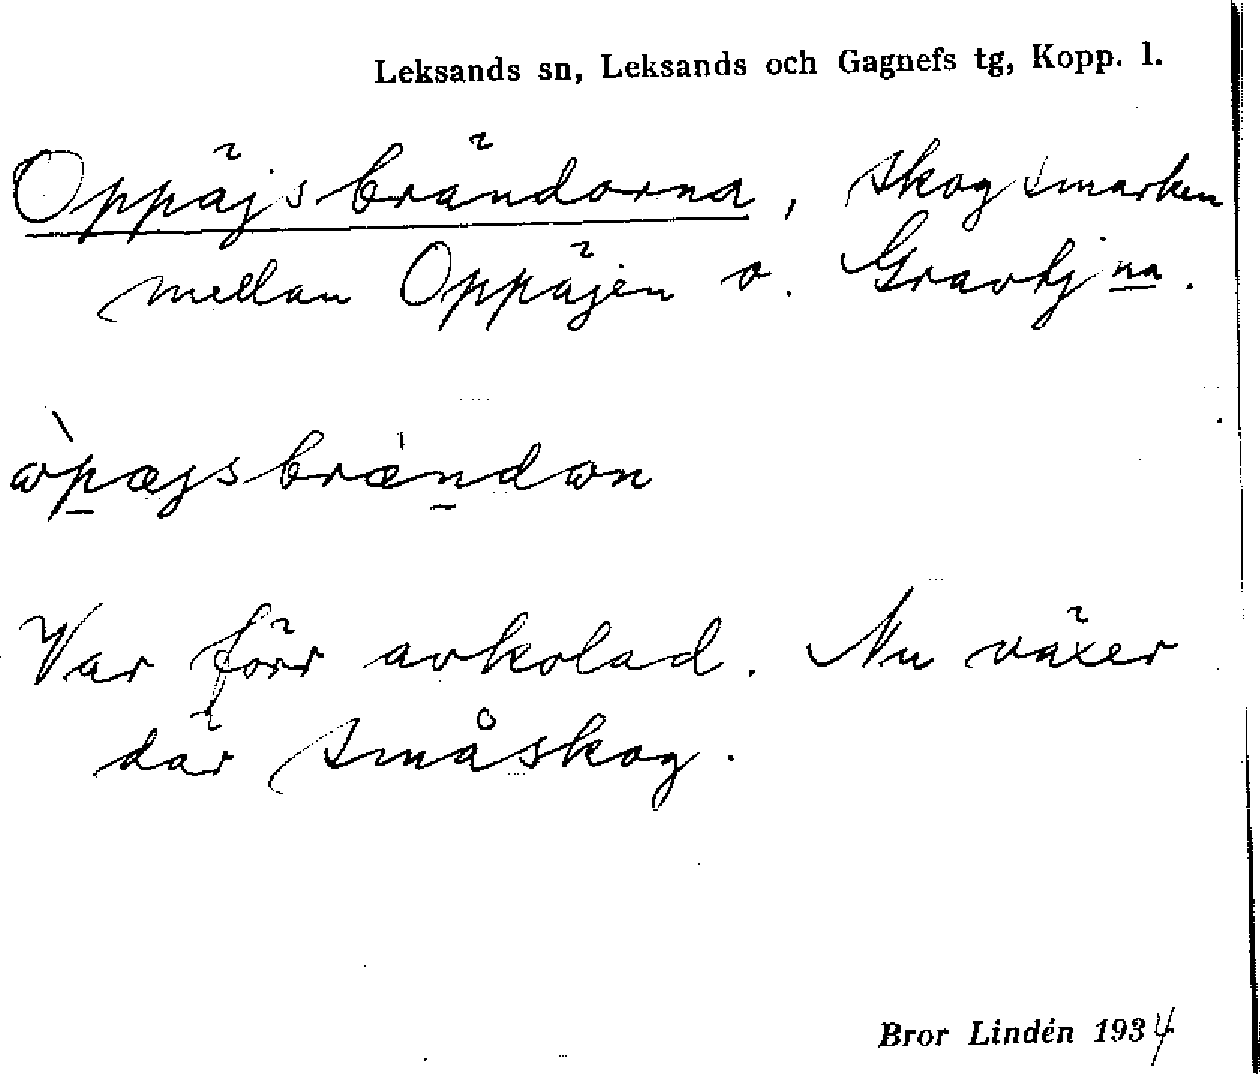 Leksands sn, Leksands och Gagnefs tg, Kopp. l.
Oppäjsbrändorna, skogsmarken
mellan Oppäjen o. Gravtjna.
ɷ̀pæjsbrænd̀ɷn
Var förr avkolad. Nu växer
där småskog.
Bror Lindén 1934